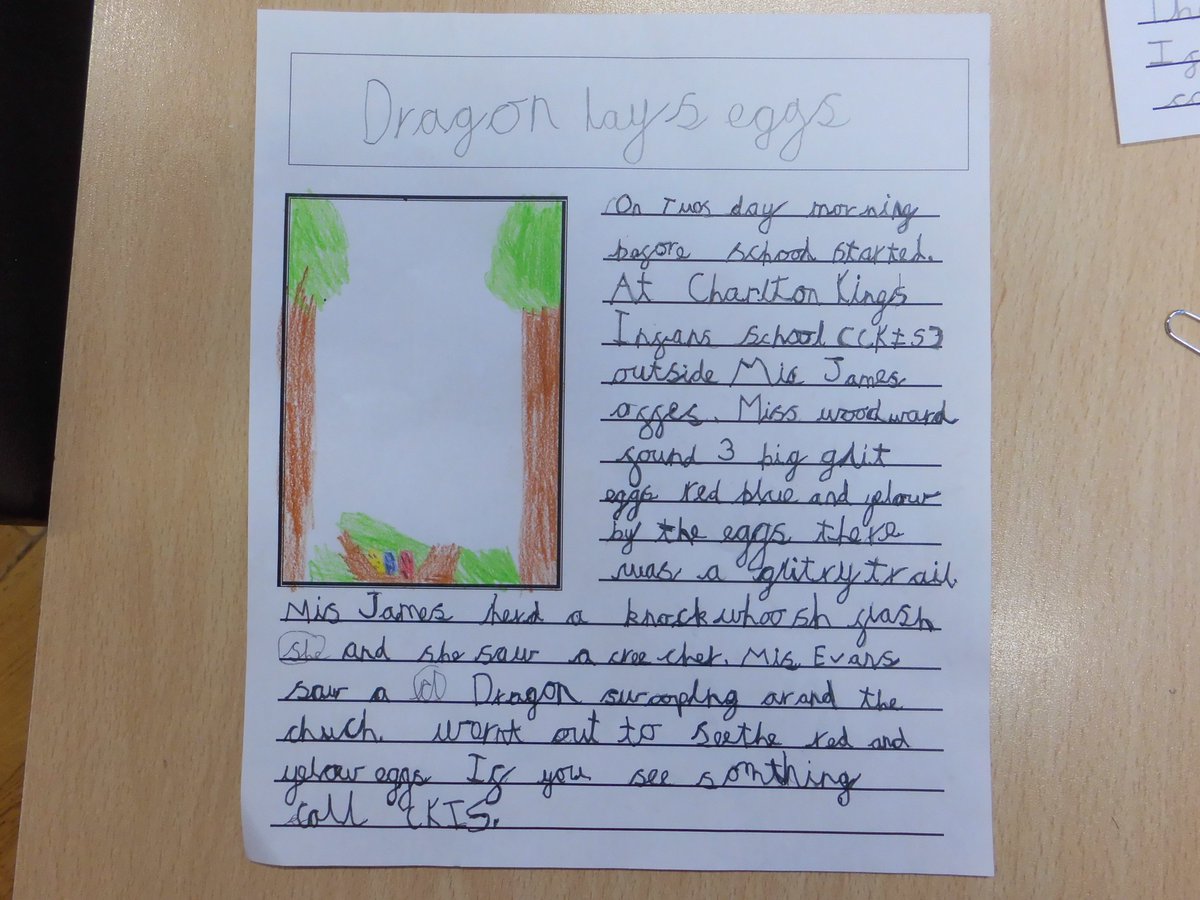 Dragon lays eggs
On Tuos day morning
before school started.
At Charlton Kings
Infans school (CKIS)
outside Mis James
offes. Miss woodward
found 3 big glit
eggs red blue and yelow
by the eggs there
was a glitry trail
Mis James herd a knock whoosh flash
she and she saw a creecher. Mis Evans
saw a d Dragon swooping arand the
chuch. wornt out to see the red and
yelow eggs If you see somthing
call CKIS.
I